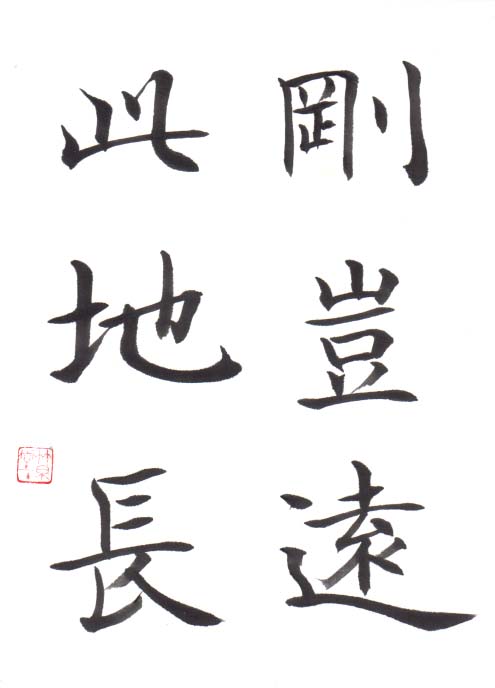 剛豈遠
此地長